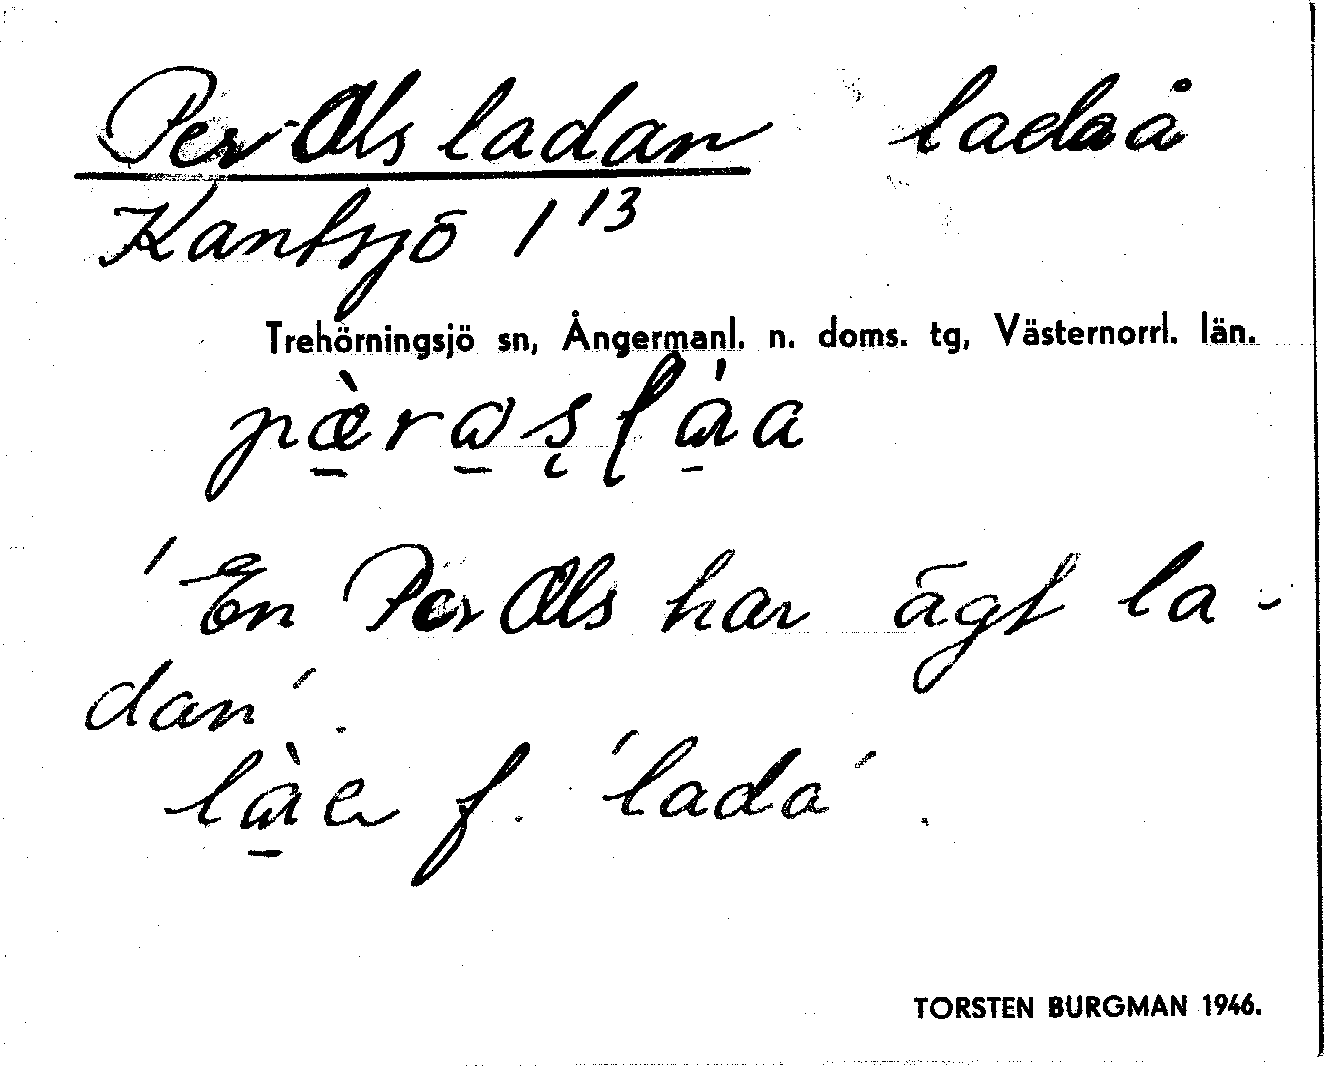 Per-Ols ladan ladaå
Kantsjö 1 13
Trehörningsjö sn, Ångermanl. n. doms. tg, Västernorrl. län.
'En Per Ols har ägt la-
dan'.
f. 'lada'.
TORSTEN BURGMAN 1946.